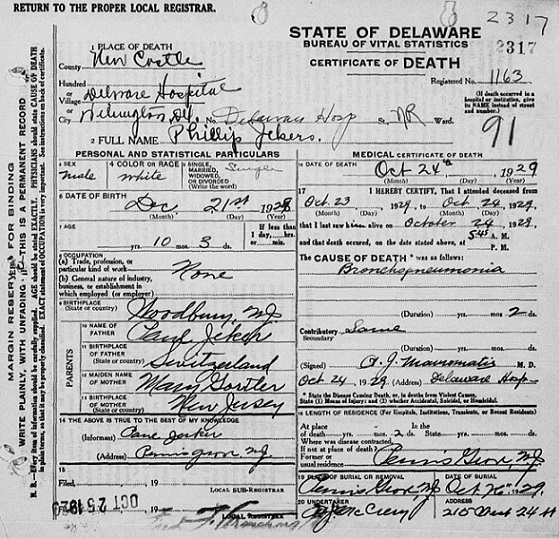 RETURN TO THE PROPER LOCAL REGISTRAR.
2317
STATE OF DELAWARE
BUREAU OF VITAL STATISTICS
2317
CERTIFICATE OF DEATH
Registered No. 1163
(If death occurred in a hospital or institution, give its NAME instead of street and number.)
91
1 PLACE OF DEATH
County New Castle
Hundred
or
Village Delaware Hospital
or
City Wilmington Del. No. Delaware Hosp St., NR Ward.
2 FULL NAME Phillip Jekers.
PERSONAL AND STATISTICAL PARTICULARS
3 SEX male
4 COLOR OR RACE white
5 SINGLE, MARRIED, WIDOWED, OR DIVORCED (Write the word) Single
6 DATE OF BIRTH
Dec. 21st 1928
(Month) (Day) (Year)
7 AGE
yrs. 10 mos. 3 ds.
If less than 1 day, hrs. or min.
8 OCCUPATION
(a) Trade, profession, or particular kind of work None
(b) General nature of industry, business, or establishment in which employed (or employer)
9 BIRTHPLACE
(State or country) Woodbury, NJ
PARENTS
10 NAME OF FATHER Paul Jeker
11 BIRTHPLACE OF FATHER
(State or country) Switzerland
12 MAIDEN NAME OF MOTHER Mary
13 BIRTHPLACE OF MOTHER
(State or country) New Jersey
14 THE ABOVE IS TRUE TO THE BEST OF MY KNOWLEDGE
(Informant)
(Address)
15
Filed , 19
LOCAL SUB-REGISTRAR
Filed , 19
OCT 25 1929
LOCAL REGISTRAR
MEDICAL CERTIFICATE OF DEATH
16 DATE OF DEATH
Oct 24th 1929
(Month) (Day) (Year)
17 I HEREBY CERTIFY, That I attended deceased from
Oct 23 1929, to Oct 24, 1929,
that I last saw him alive on October 24 1929,
and that death occurred, on the date stated above, at 5:45 A. M. P. M.
The CAUSE OF DEATH* was as follows:
Bronchopneumonia
(Duration) yrs. mos. 2 ds.
Contributory Same
Secondary
(Duration) yrs. mos. ds.
(Signed) A. J. Mavromatis M. D.
Oct 24, 1929 (Address) Delaware Hosp
* State the Disease Causing Death, or, in deaths from Violent Causes, State (1) Means of Injury; and (2) whether Accidental, Suicidal, or Homicidal.
18 LENGTH OF RESIDENCE (For Hospitals, Institutions, Transients, or Recent Residents)
At place of death yrs. mos. 2 ds.
Where was disease contracted,
If not at place of death?
Former or usual residence Penns Grove, NJ
19 PLACE OF BURIAL OR REMOVAL
Penns Grove, NJ
DATE OF BURIAL
Oct 26th 1929.
20 UNDERTAKER
McCrery
ADDRESS
215 West 24 St
MARGIN RESERVED FOR BINDING
WRITE PLAINLY, WITH UNFADING INK—THIS IS A PERMANENT RECORD
N. B.—Every item of information should be carefully supplied. AGE should be stated EXACTLY. PHYSICIANS should state CAUSE OF DEATH in plain terms, so that it may be properly classified. EXACT statement of OCCUPATION is very important. See instructions on back of certificate.